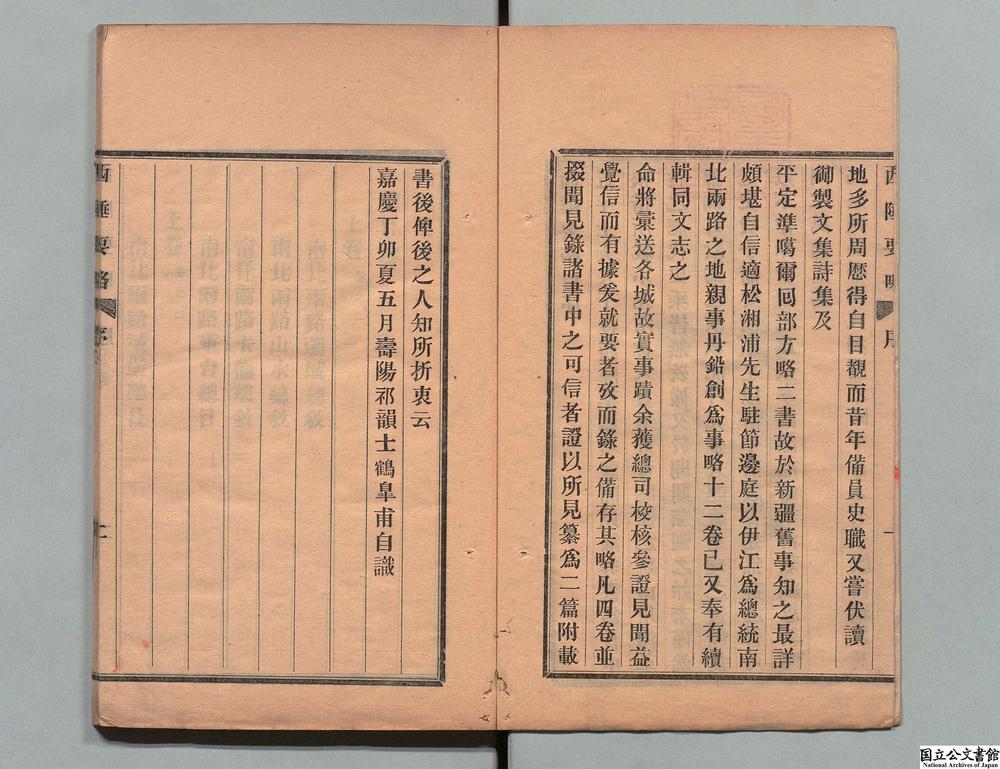 西陲要略 序 一
地多所周歷得自目覩而昔年備員史職又嘗伏讀
御製文集詩集及
平定準噶爾回部方略二書故於新疆舊事知之最詳
頗堪自信適松湘浦先生駐節邊庭以伊江爲總統南
北兩路之地親事丹鉛創爲事略十二卷已又奉有續
輯同文志之
命將彙送各城故實事蹟余獲總司校核參證見聞益
覺信而有據爰就要者攷而錄之備存其略凡四卷並
掇聞見錄諸書中之可信者證以所見纂爲二篇附載
書後俾後之人知所折衷云
嘉慶丁卯夏五月壽陽祁韻士鶴皐甫自識
西陲要略 序 二
国立公文書館
National Archives of Japan